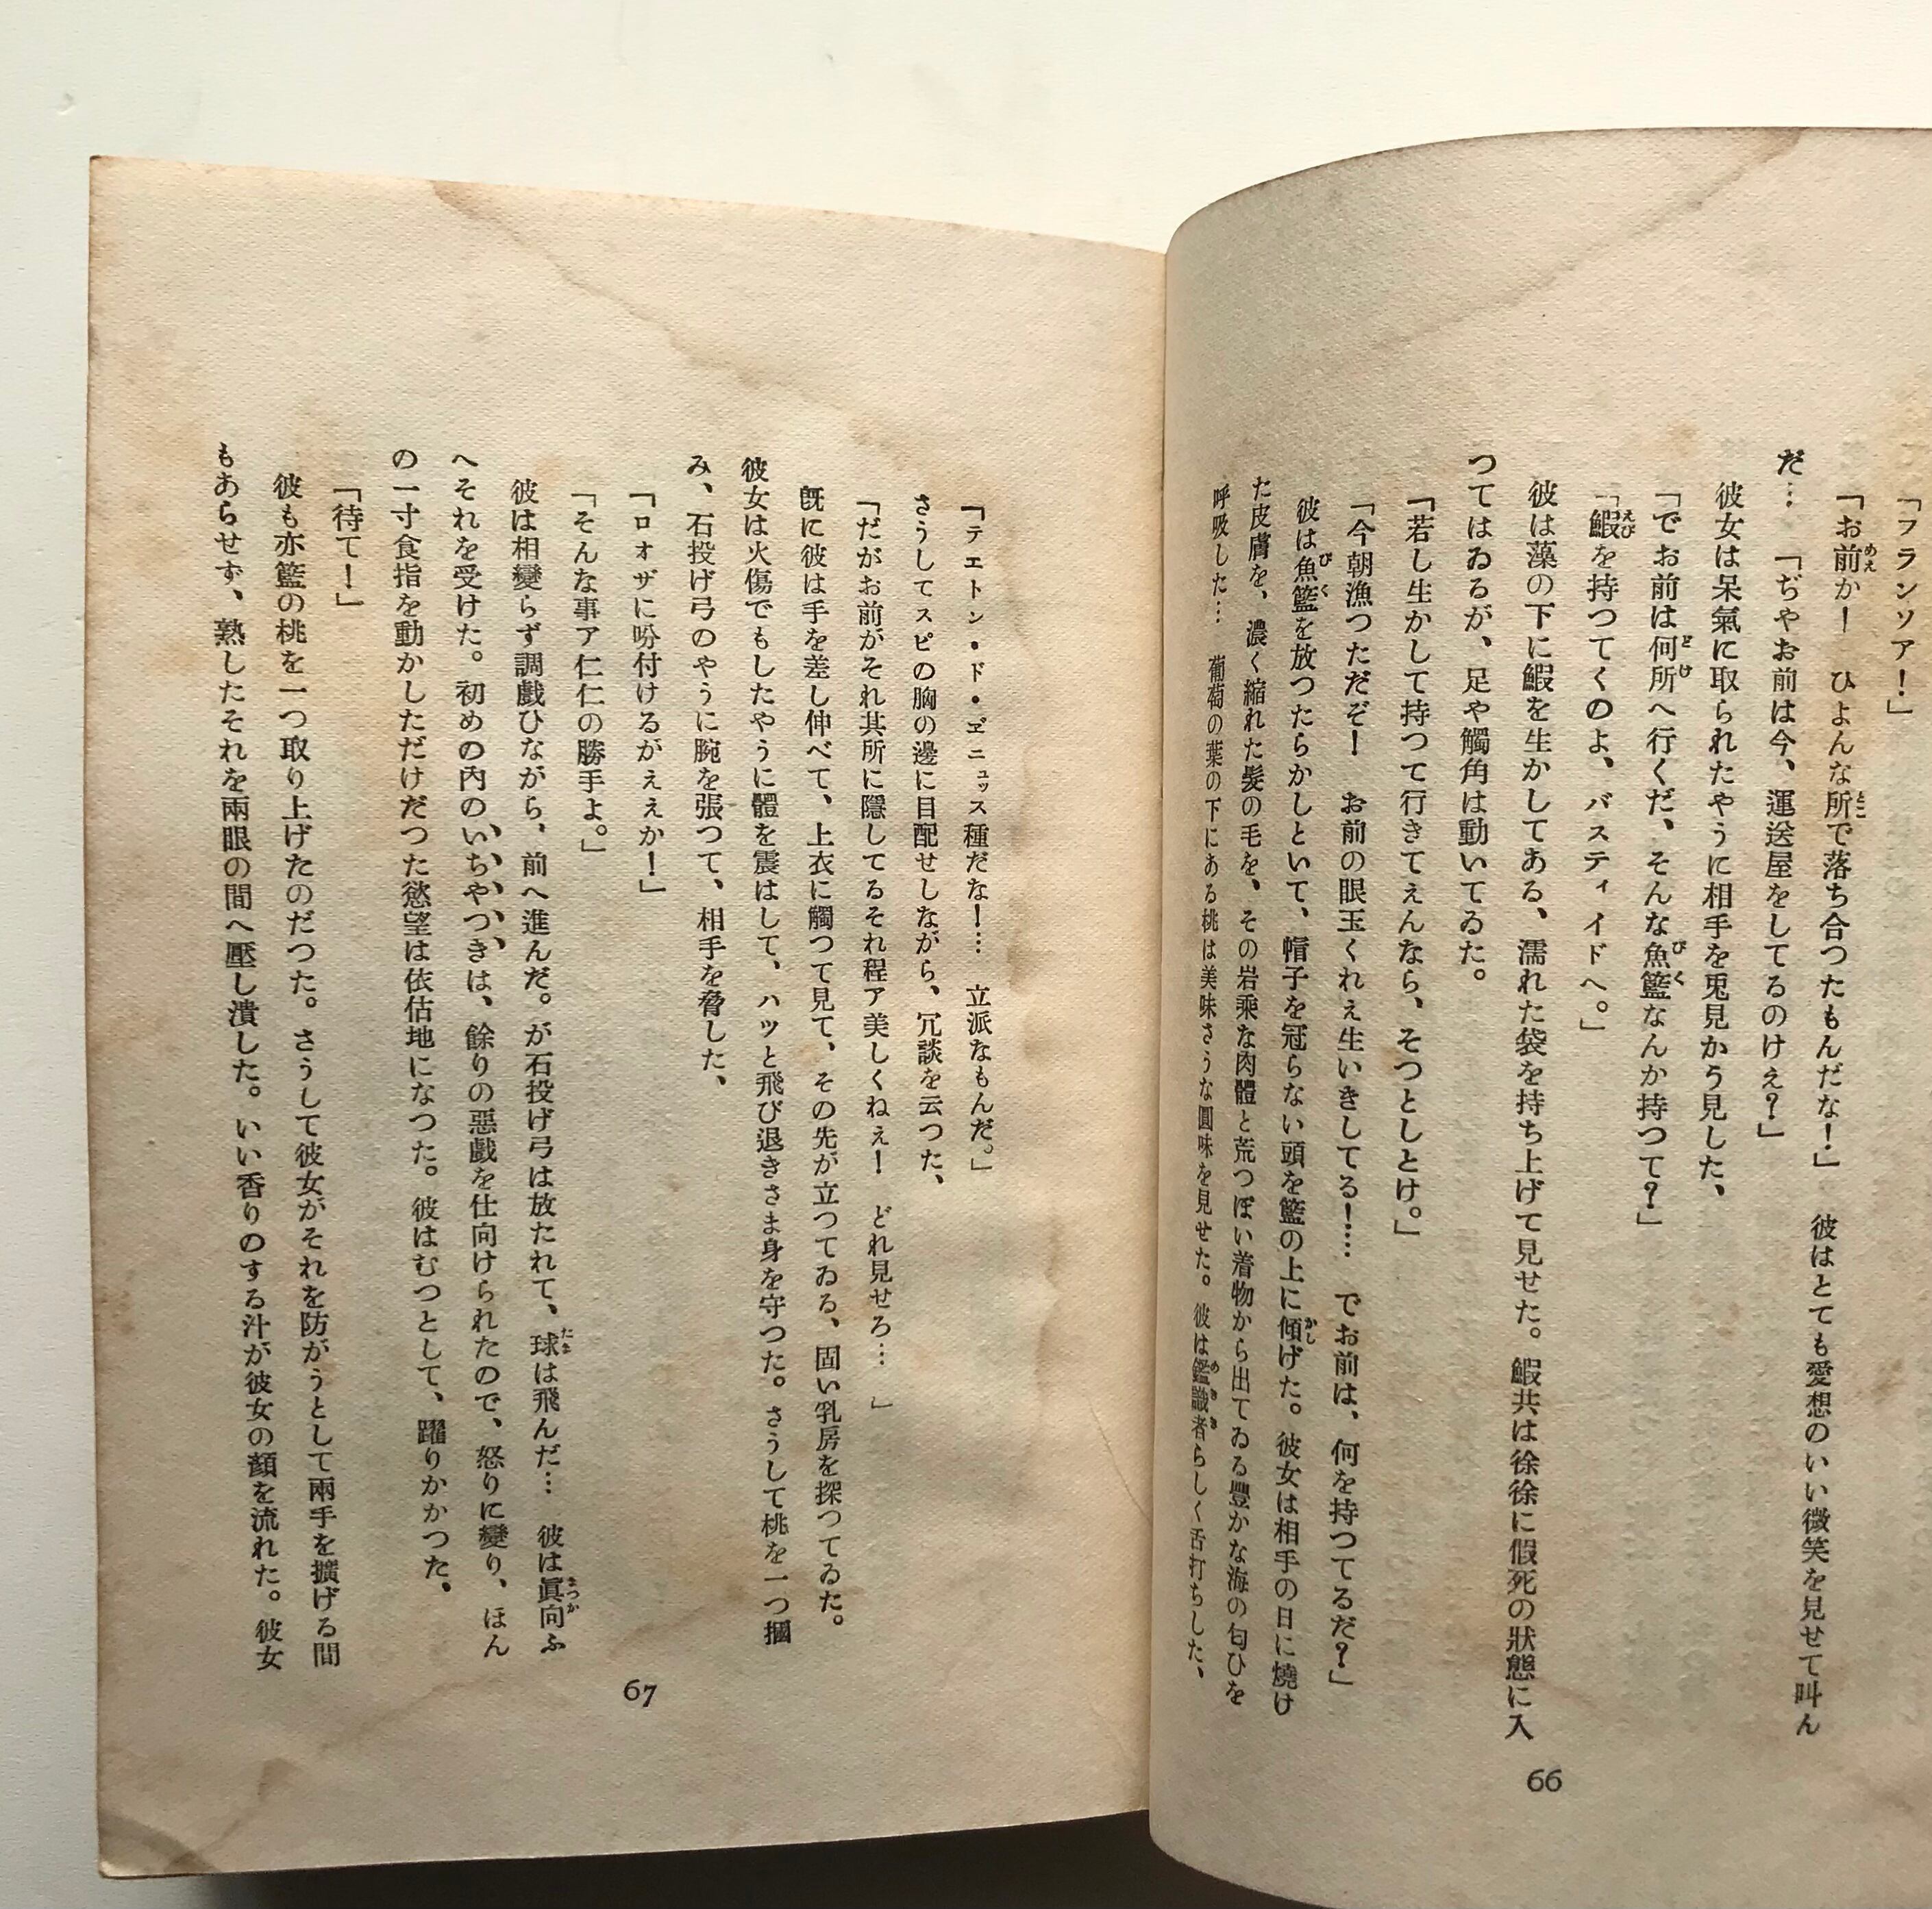 「フランソア！」
「お前めえか！　ひよんな所とこで落ち合つたもんだな！」　彼はとても愛想のいい微笑を見せて叫ん
だ…　「ぢやお前は今、運送屋をしてるのけぇ？」
彼女は呆氣に取られたやうに相手を兎見かう見した、
「でお前は何所どけへ行くだ、そんな魚籃びくなんか持つて？」
「鰕えびを持つてくのよ、バスティイドへ。」
彼は藻の下に鰕を生かしてある、濡れた袋を持ち上げて見せた。鰕共は徐徐に假死の狀態に入
つてはゐるが、足や觸角は動いてゐた。
「若し生かして持つて行きてえんなら、そつとしとけ。」
「今朝漁つただぞ！　お前の眼玉くれぇ生いきしてる！…　でお前は、何を持つてるだ？」
彼は魚籃びくを放つたらかしといて、帽子を冠らない頭を籃の上に傾かしげた。彼女は相手の日に燒け
た皮膚を、濃く縮れた髮の毛を、その岩乘な肉體と荒つぽい着物から出てゐる豐かな海の匂ひを
呼吸した…　葡萄の葉の下にある桃は美味さうな圓味を見せた。彼は鑑識者めききらしく舌打ちした、
66
「テエトン・ド・ヹニュッス種だな！…　立派なもんだ。」
さうしてスピの胸の邊に目配せしながら、冗談を云つた、
「だがお前がそれ其所に隱してるそれ程ア美しくねぇ！　どれ見せろ…　」
旣に彼は手を差し伸べて、上衣に觸つて見て、その先が立つてゐる、固い乳房を探つてゐた。
彼女は火傷でもしたやうに體を震はして、ハッと飛び退きさま身を守つた。さうして桃を一つ摑
み、石投げ弓のやうに腕を張つて、相手を脅した、
「ロオザに吩付けるがえぇか！」
「そんな事ア仁仁の勝手よ。」
彼は相變らず調戲ひながら、前へ進んだ。が石投げ弓は放たれて、球たまは飛んだ…　彼は眞向まつかふ
へそれを受けた。初めの內のいちやつきは、餘りの惡戲を仕向けられたので、怒りに變り、ほん
の一寸食指を動かしただけだつた慾望は依估地になつた。彼はむつとして、躍りかかつた。
「待て！」
彼も亦籃の桃を一つ取り上げたのだつた。さうして彼女がそれを防がうとして兩手を擴げる間
もあらせず、熟したそれを兩眼の間へ壓し潰した。いい香りのする汁が彼女の顏を流れた。彼女
67